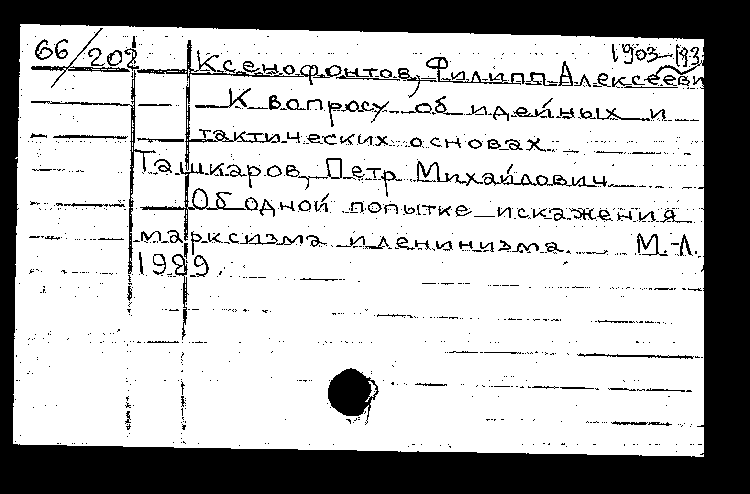 66/202
1903-193
Ксенофонтов, Филипп Алексееви
К вопросу об идейных и
тактических основах.
Ташкаров, Петр Михайлович
Об одной попытке искажения
марксизма и ленинизма. М.-Л.
1929.